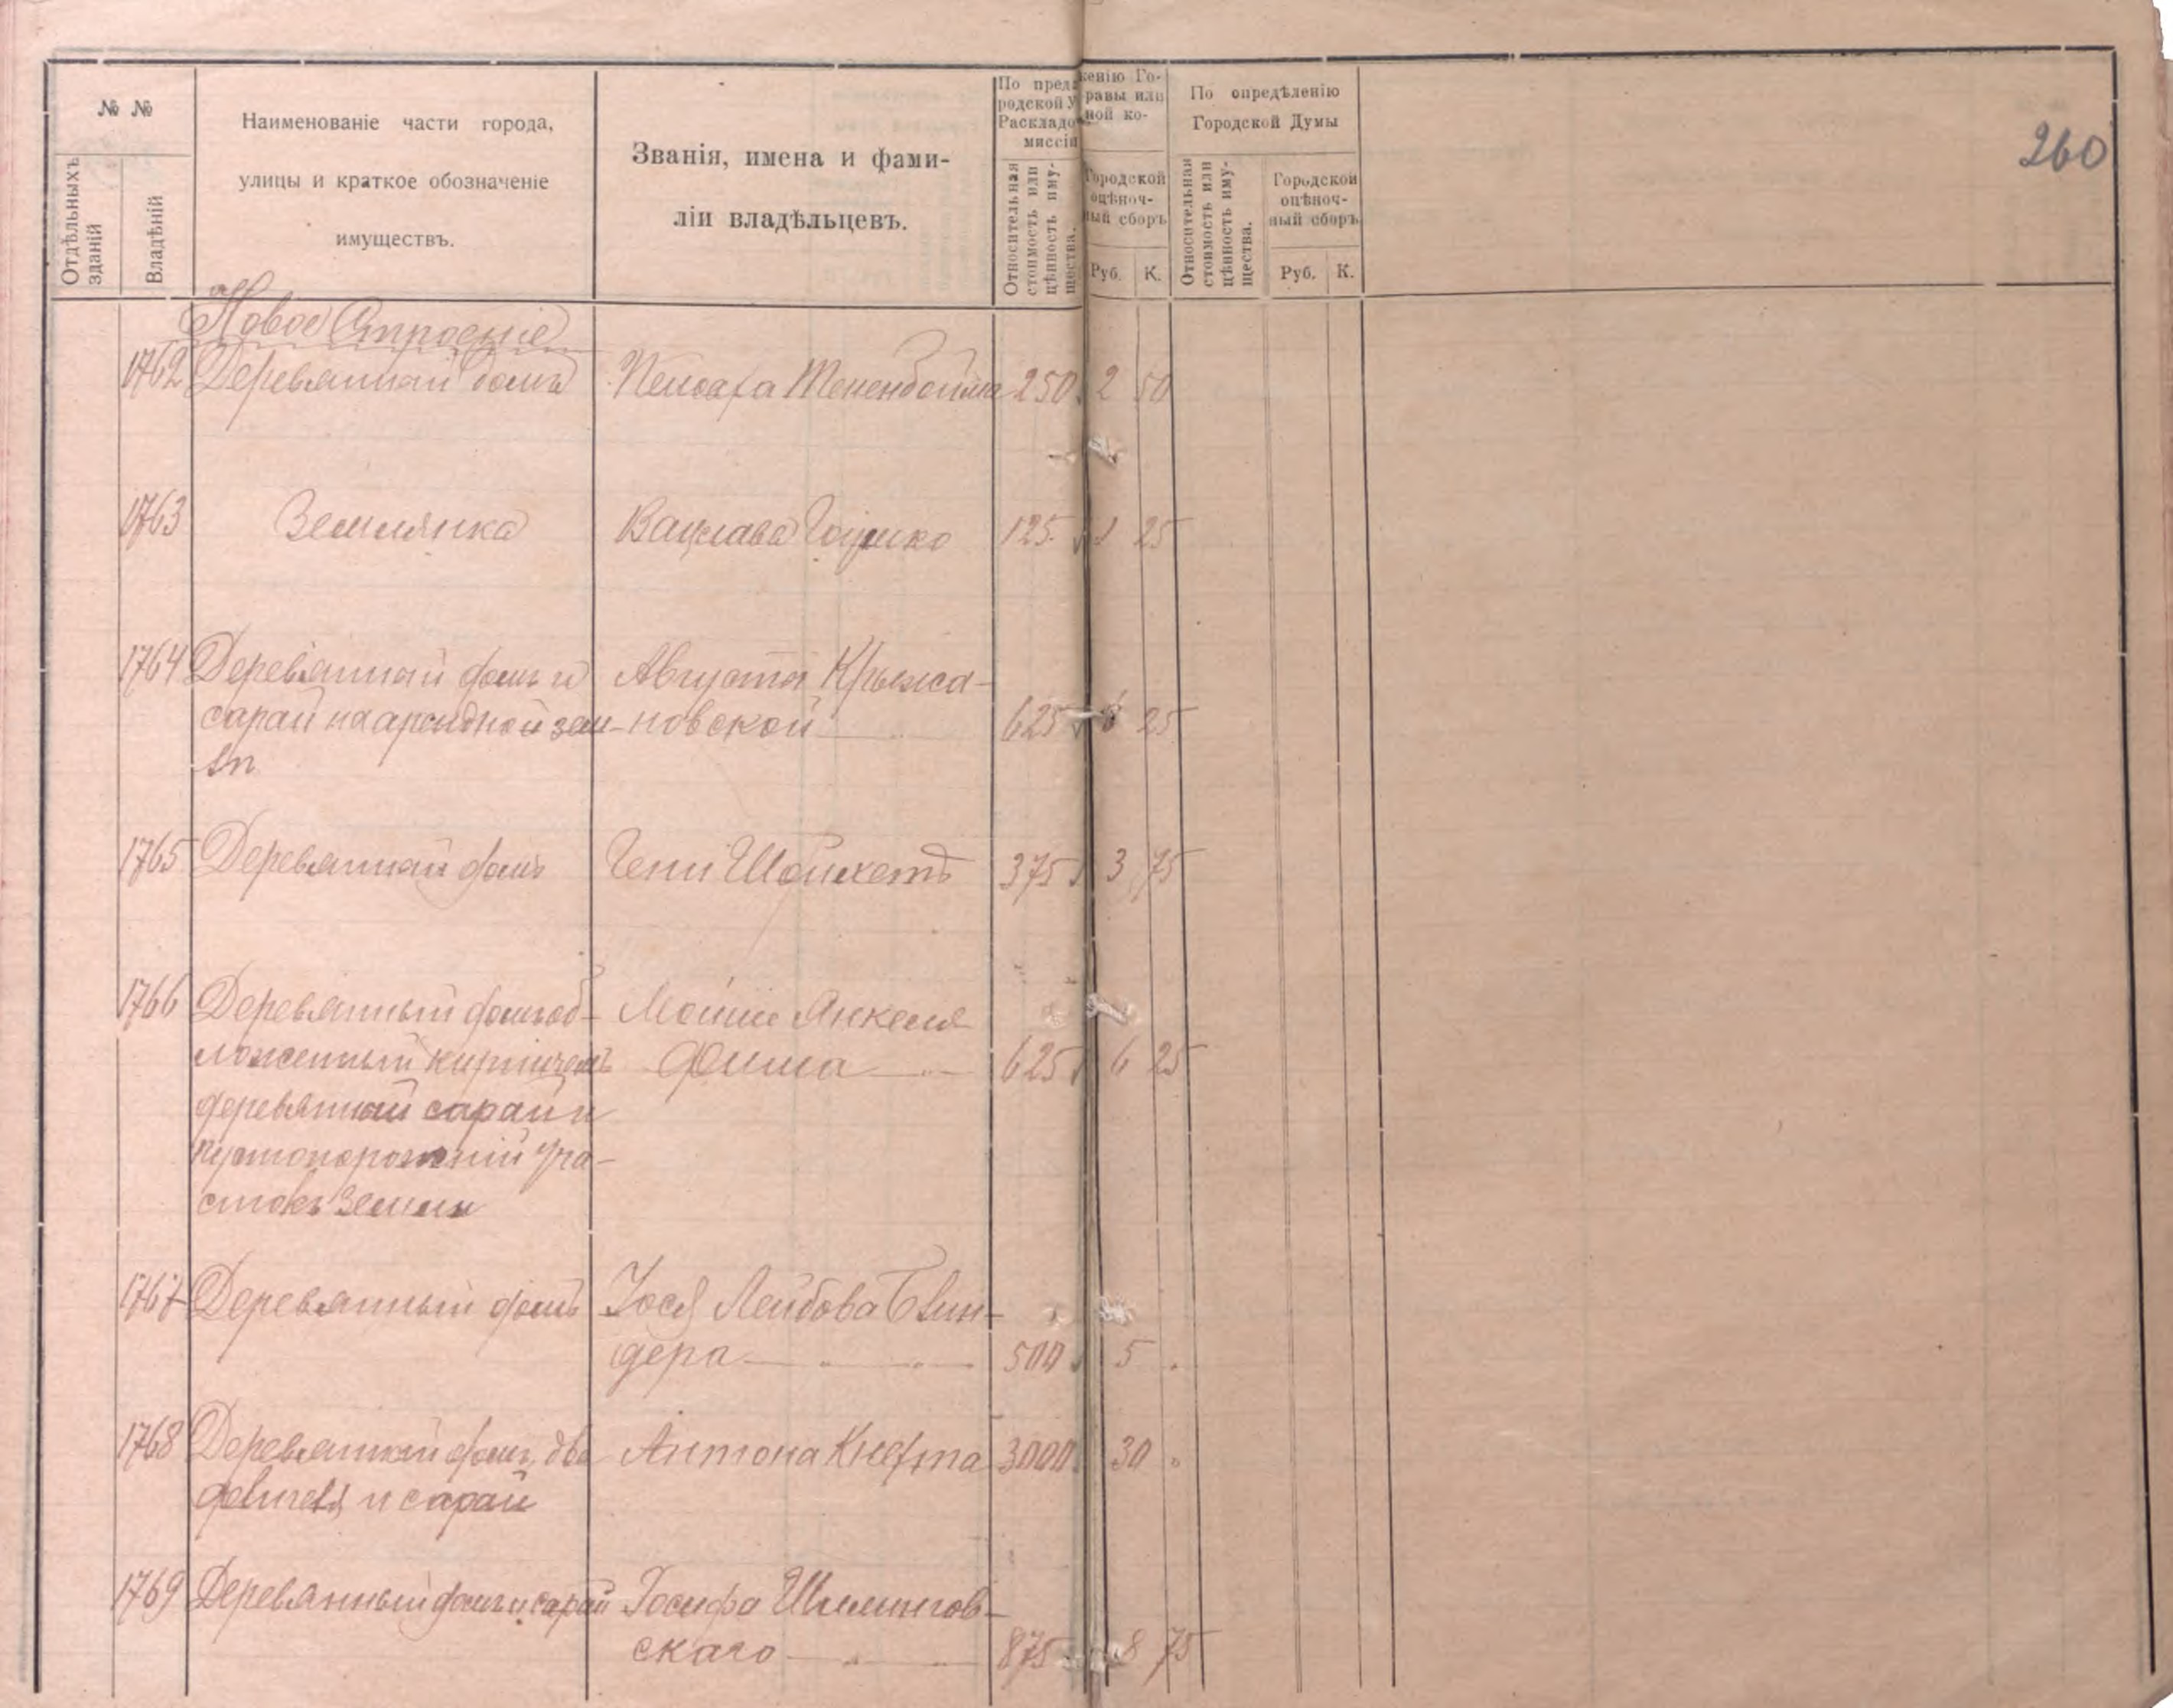 260
№ №
Отдѣльныхъ зданій
Владѣній
Наименованіе части города,
улицы и краткое обозначеніе
имуществъ.
Званія, имена и фами-
ліи владѣльцевъ.
По пред
женію Го-
родской У
равы или
Расклад
ной ко-
миссіи
Относительная
стоимость или
цѣнность иму-
щества.
Городской
оцѣноч-
ный сборъ
Руб. К.
По опредѣленію
Городской Думы
Относительная
стоимость или
цѣнность иму-
щества.
Городской
оцѣноч-
ный сборъ
Руб. К.
Новое Строеніе
1762 Деревянный домъ Тененбойма 250 2 50
1763 Землянка Вацлава 125 1 25
1764 Деревянный домъ и Августы Крыжа-
сарай на арендной зем- новской 625 6 25
лѣ
1765 Деревянный домъ Гени Шойхетъ 375 3 75
1766 Деревянный домъ об- Мойши Янкеля
ложенный кирпичемъ Фиша 625 6 25
деревянный сарай и
пустопорожній уча-
стокъ земли
1767 Деревянный домъ Іося Лейбова Блин-
дера 500 5
1768 Деревянный домъ, два Антона Кнехта 3000 30
флигеля и сарай
1769 Деревянный домъ и сарай Іосифа
скаго 875 8 75